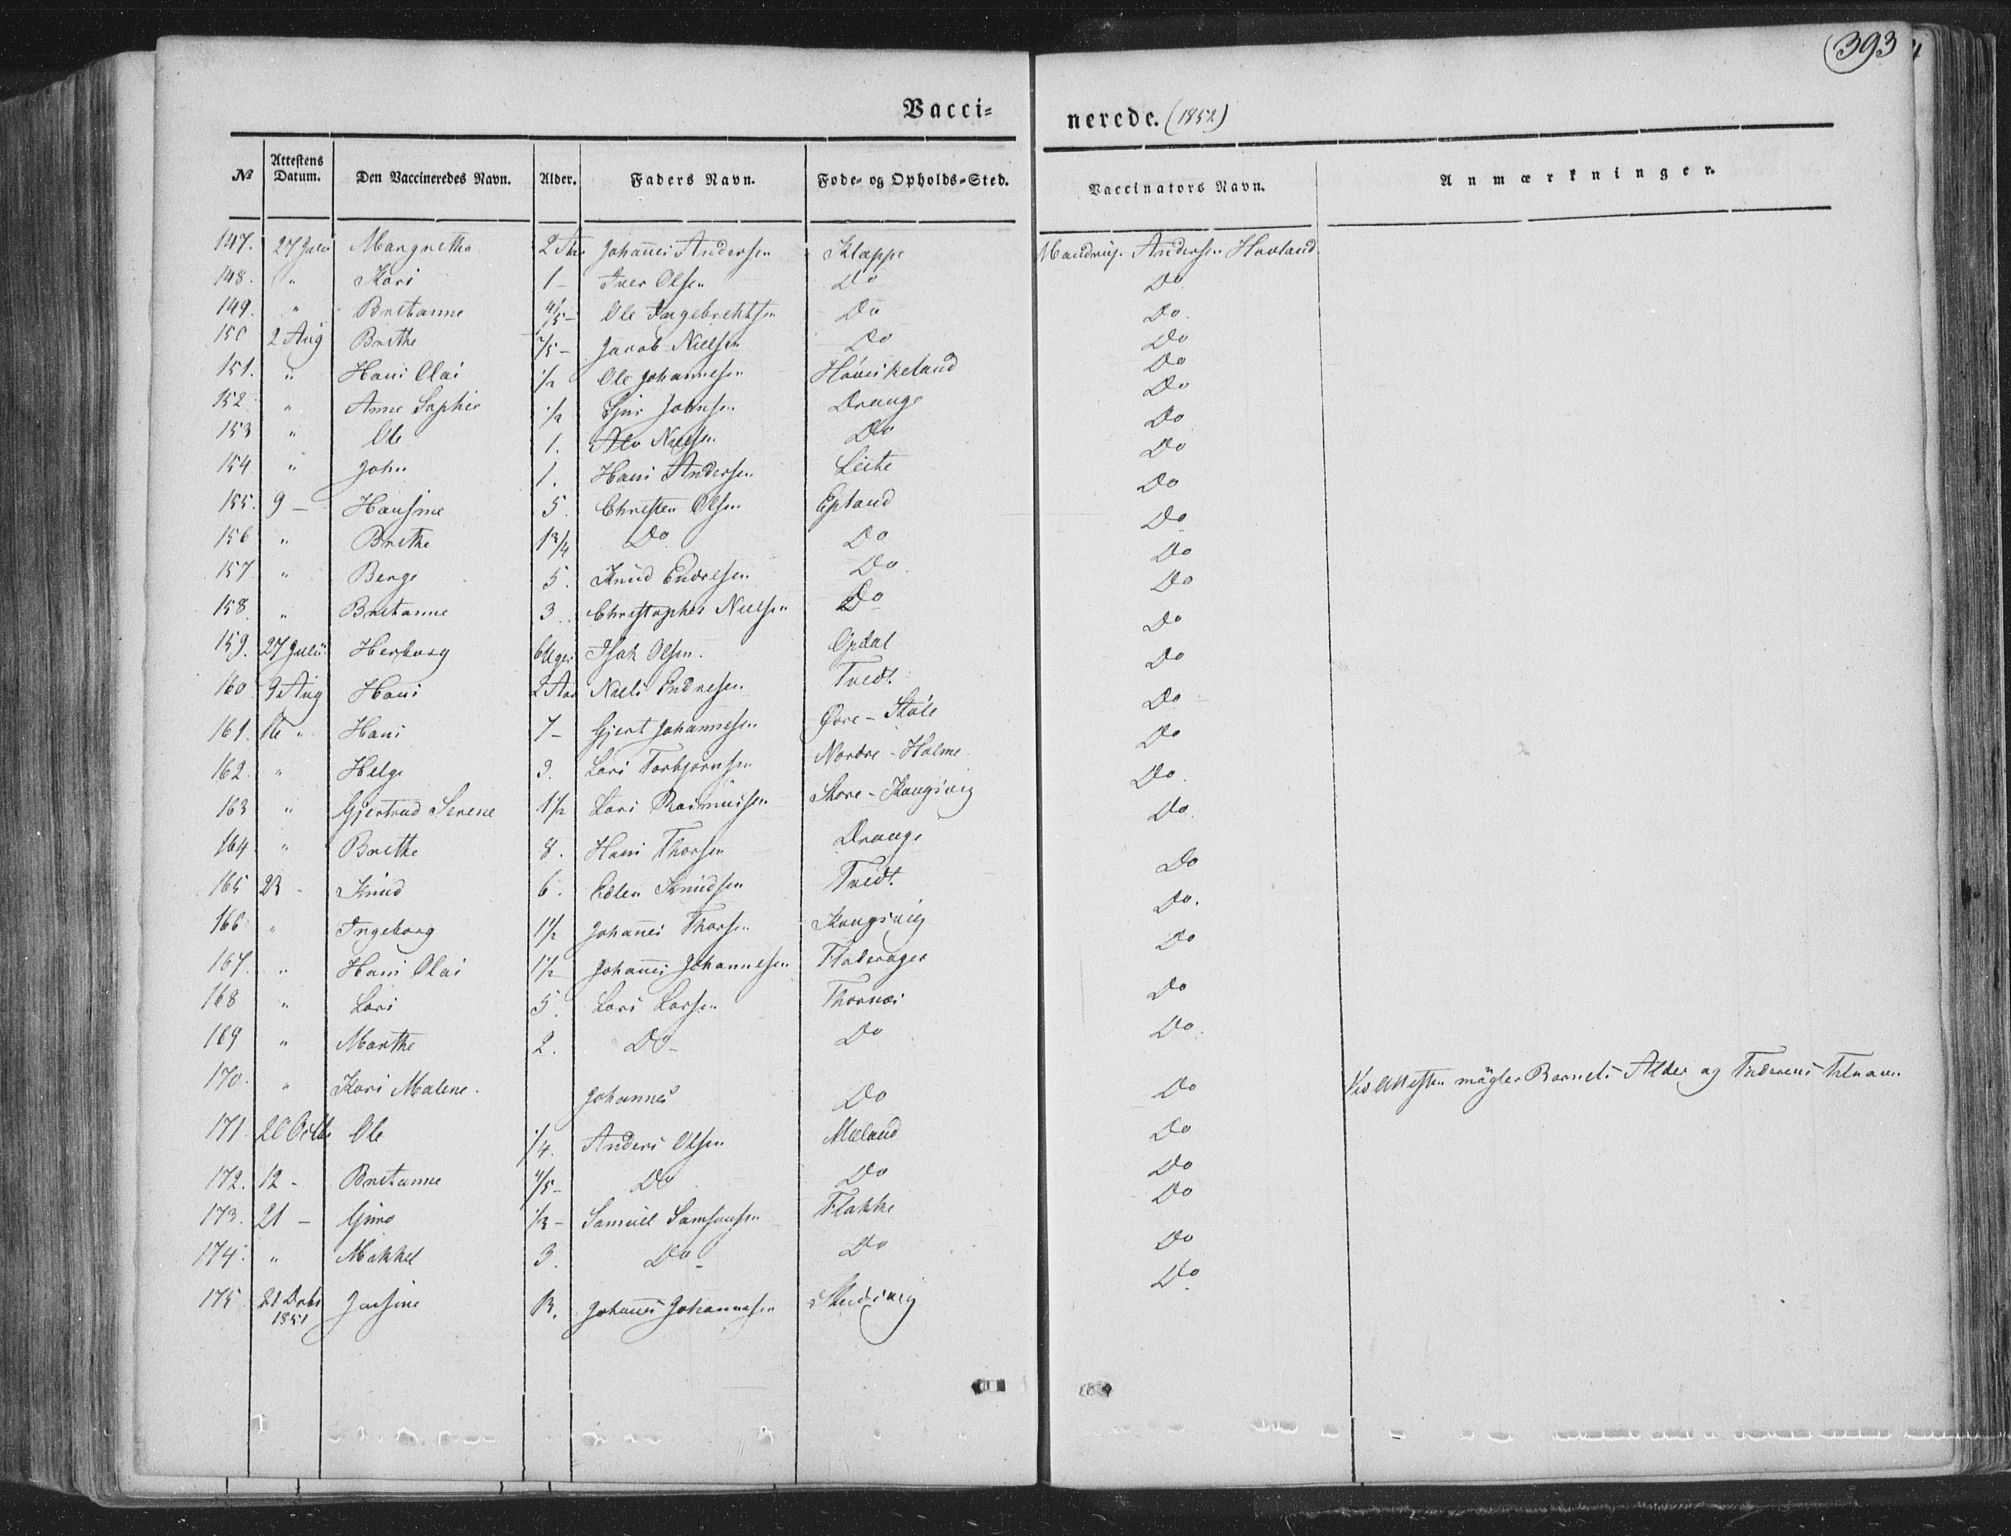 393
Vacci=
nerede. (1852)
№ Attestens Datum. Den Vaccineredes Navn. Alder. Faders Navn. Føde- og Opholds-Sted. Vaccinators Navn. Anmærkninger.
147. 27 Julii Margrethe 2 Aar Johannes Andersen Klappe Mandrup Andersen Hovland
148. " Kari 1 - Iver Olsen Do Do
149. " Britanne 4/5 - Ole Ingebrichtsen Do Do.
150 2 Aug Brithe /5 - Jacob Nielsen Do Do
151. " Hans Olai 1/2 Ole Johannesen Høviskeland Do
152 " Anne Sophie 1/2 Sjur Johnsen Drange Do
153 " Ole 1. Nielsen Do Do
154 " John 1. Hans Andersen Leite Do
155. 9 - Hansine 5. Christen Olsen Epland Do
156 " Brithe 1 3/4 Do Do Do
157 " Berge 5. Knud Endresen Do. Do
158. " Britanne 3. Christopher Nielsen Do Do
159. 27 Julii Herborg 6 Uger Isak Olsen. Opdal Do
160 9 Aug Hans 2 Aar Niels Endresen Tvedt. Do
161. 16 " Hans 7 - Gjert Johannesen Øvre - Støle Do
162. " Helge 9. Lars Torbjørnsen Nordre - Holme Do
163 " Gjertrud Serene 1 1/2 Lars Rasmussen Store - Kongsvig Do.
164 " Brithe 8. Hans Thorsen Drange Do.
165 23 - Knud 6. Edlen Knudsen Tvedt. Do
166 " Ingeborg 1 1/2 Johannes Thorsen Kongsvig Do.
167. " Hans Olai 1 1/2 Johannes Johannesen Fladerager Do
168 " Lars 5. Lars Larsen Thornæs Do
169 " Marthe 2. Do - Do Do.
170. " Kari Malene. Johannes Do Do Ved Attesten mangler Barnets Alder og Faderens Tilnavn
171. 20 Octbr Ole 1/4. Anders Olsen Mæland Do
172. 12 - Britanne 4/5 - Do Do Do
173. 21 - Guro 1/3 - Samuel Samsonsen Flakke Do
174. " Mikkel 3. Do - Do Do
175 21 Decbr 1851 Johannes Johannesen Do